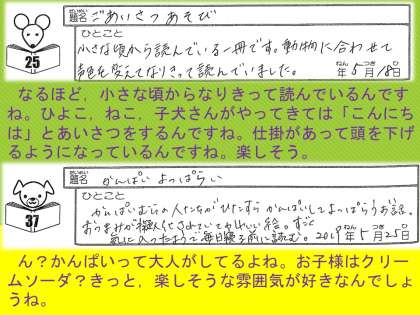 だいめい
題名 ごあいさつあそび
ひとこと
小さな頃から読んでいる一冊です。動物に合わせて
声色を変えてなりきって読んでいました。
ねん がつ にち
年5月18日
25
なるほど，小さな頃からなりきって読んでいるんです
ね。ひよこ，ねこ，子犬さんがやってきては「こんにち
は」とあいさつをするんですね。仕掛があって頭を下げ
るようになっているんですね。楽しそう。
だいめい
題名 かんぱい よっぱらい
ひとこと
かんぱいむらの人たちがひたすらかんぱいしてよっぱらうお話。
おつまみが擬人化されていてかわいい絵。すごく
気に入ったようで毎日寝る前に読む。2019年5月25日
37
ん？かんぱいって大人がしてるよね。お子様はクリー
ムソーダ？きっと，楽しそうな雰囲気が好きなんでしょ
うね。